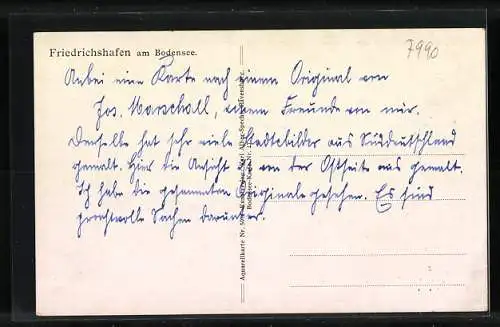 Friedrichshafen am Bodensee.
7990
Anbei eine Karte nach einem Original von
Jos. Marschall, einem Freunde von mir.
Derselbe hat sehr viele Stadtebilder aus Süddeutschland
gemalt. Hier die Ansicht ist von der Ostseite aus gemalt.
Ich habe die gesammten Originale gesehen. Es sind
prachtvolle Sachen darunter.
Aquarellkarte Nr.